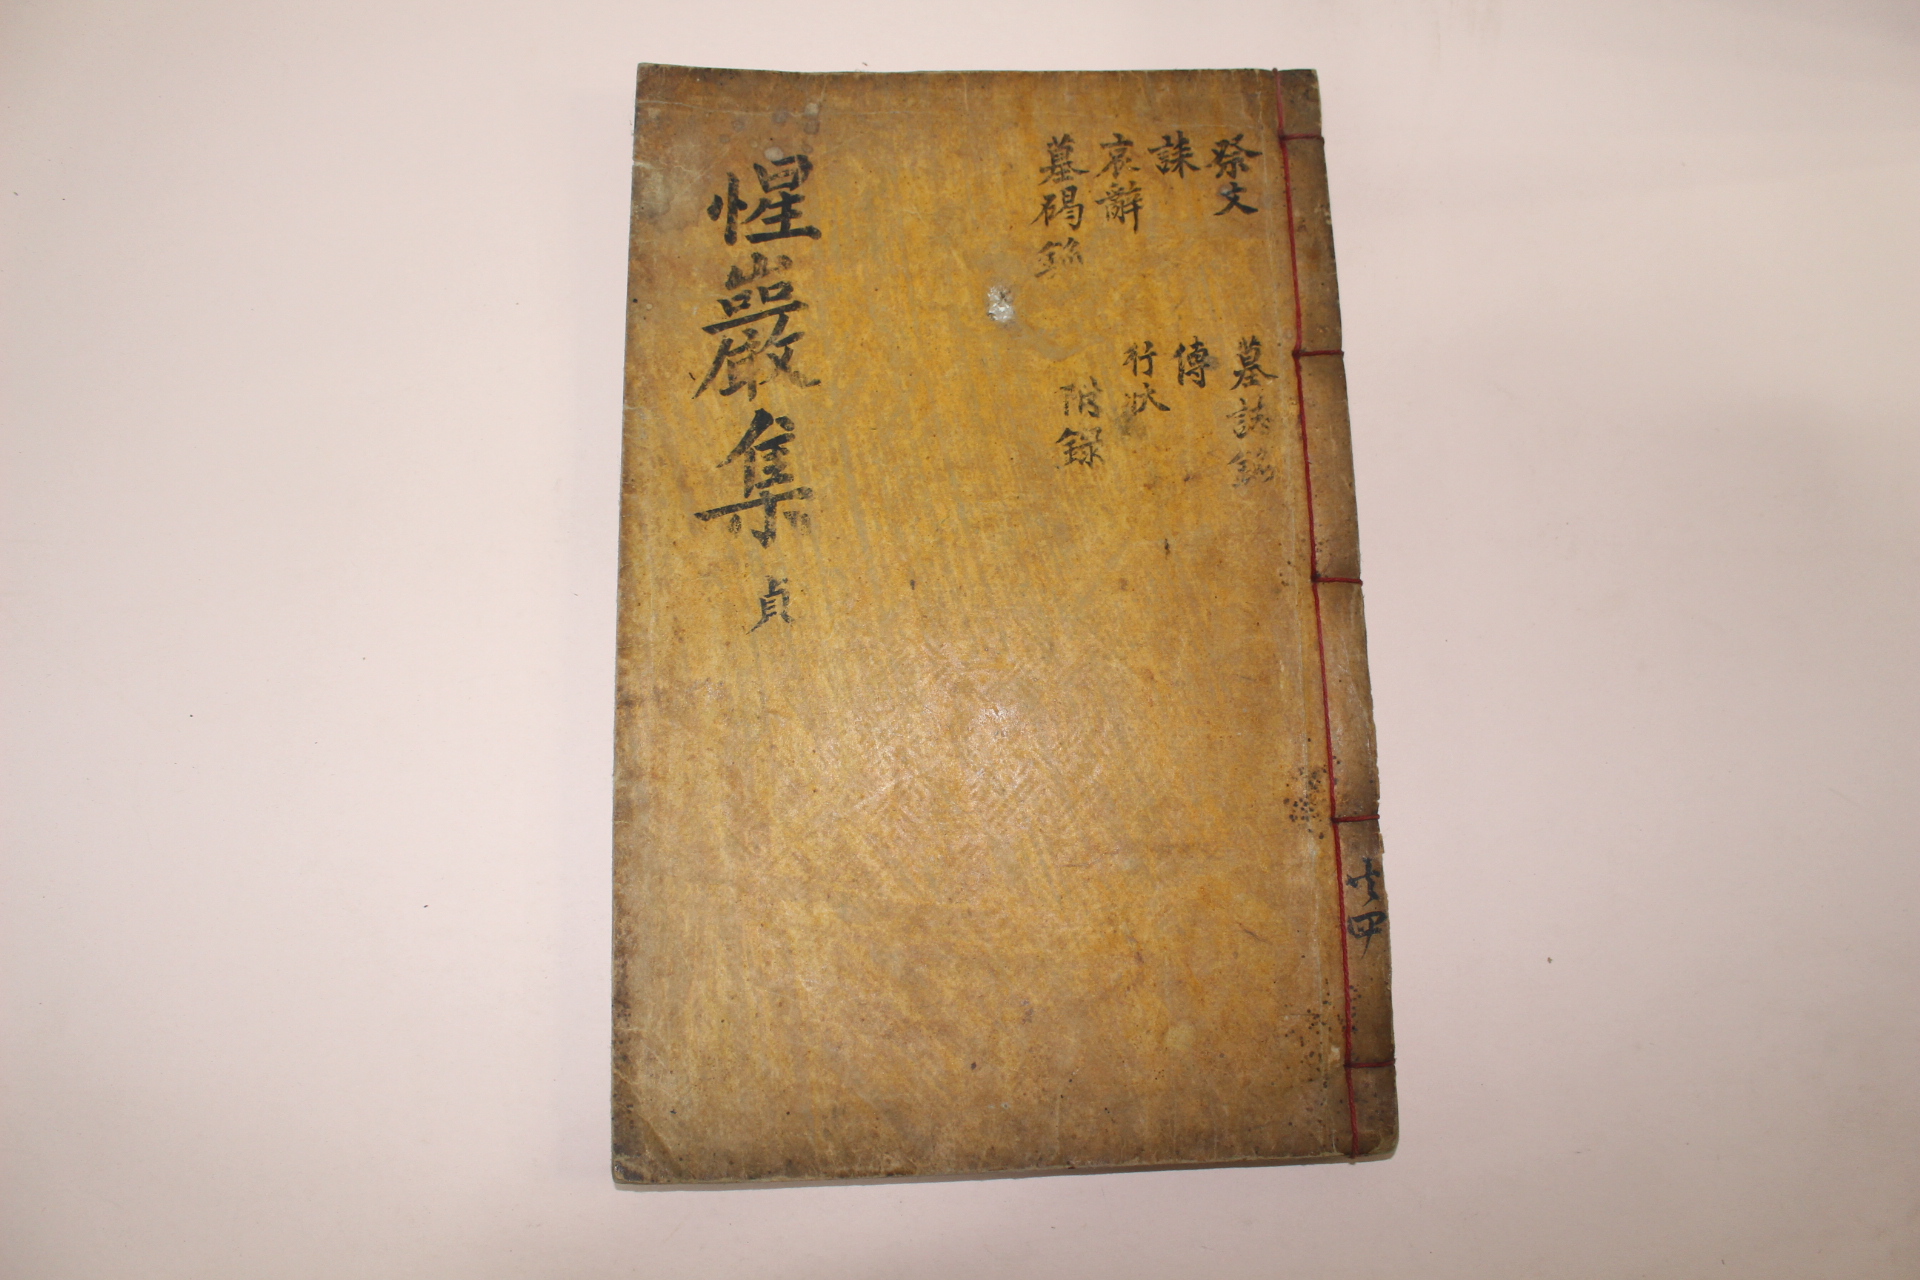 祭文
誄
哀辭
墓碣銘
墓誌銘
傳
行狀
附錄
惺巖集 貞
共四